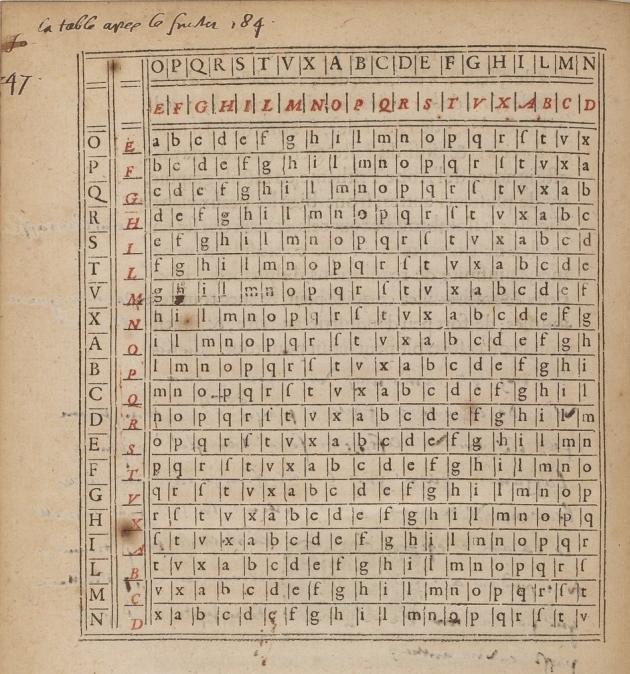 la table apres le fueillet 184.
47
O P Q R S T V X A B C D E F G H I L M N
E F G H I L M N O P Q R S T V X A B C D
O E a b c d e f g h i l m n o p q r ſ t v x
P F b c d e f g h i l m n o p q r ſ t v x a
Q G c d e f g h i l m n o p q r ſ t v x a b
R H d e f g h i l m n o p q r ſ t v x a b c
S I e f g h i l m n o p q r ſ t v x a b c d
T L f g h i l m n o p q r ſ t v x a b c d e
V M g h i l m n o p q r ſ t v x a b c d e f
X N h i l m n o p q r ſ t v x a b c d e f g
A O i l m n o p q r ſ t v x a b c d e f g h
B P l m n o p q r ſ t v x a b c d e f g h i
C Q m n o p q r ſ t v x a b c d e f g h i l
D R n o p q r ſ t v x a b c d e f g h i l m
E S o p q r ſ t v x a b c d e f g h i l m n
F T p q r ſ t v x a b c d e f g h i l m n o
G V q r ſ t v x a b c d e f g h i l m n o p
H X r ſ t v x a b c d e f g h i l m n o p q
I A ſ t v x a b c d e f g h i l m n o p q r
L B t v x a b c d e f g h i l m n o p q r ſ
M C v x a b c d e f g h i l m n o p q r ſ t
N D x a b c d e f g h i l m n o p q r ſ t v